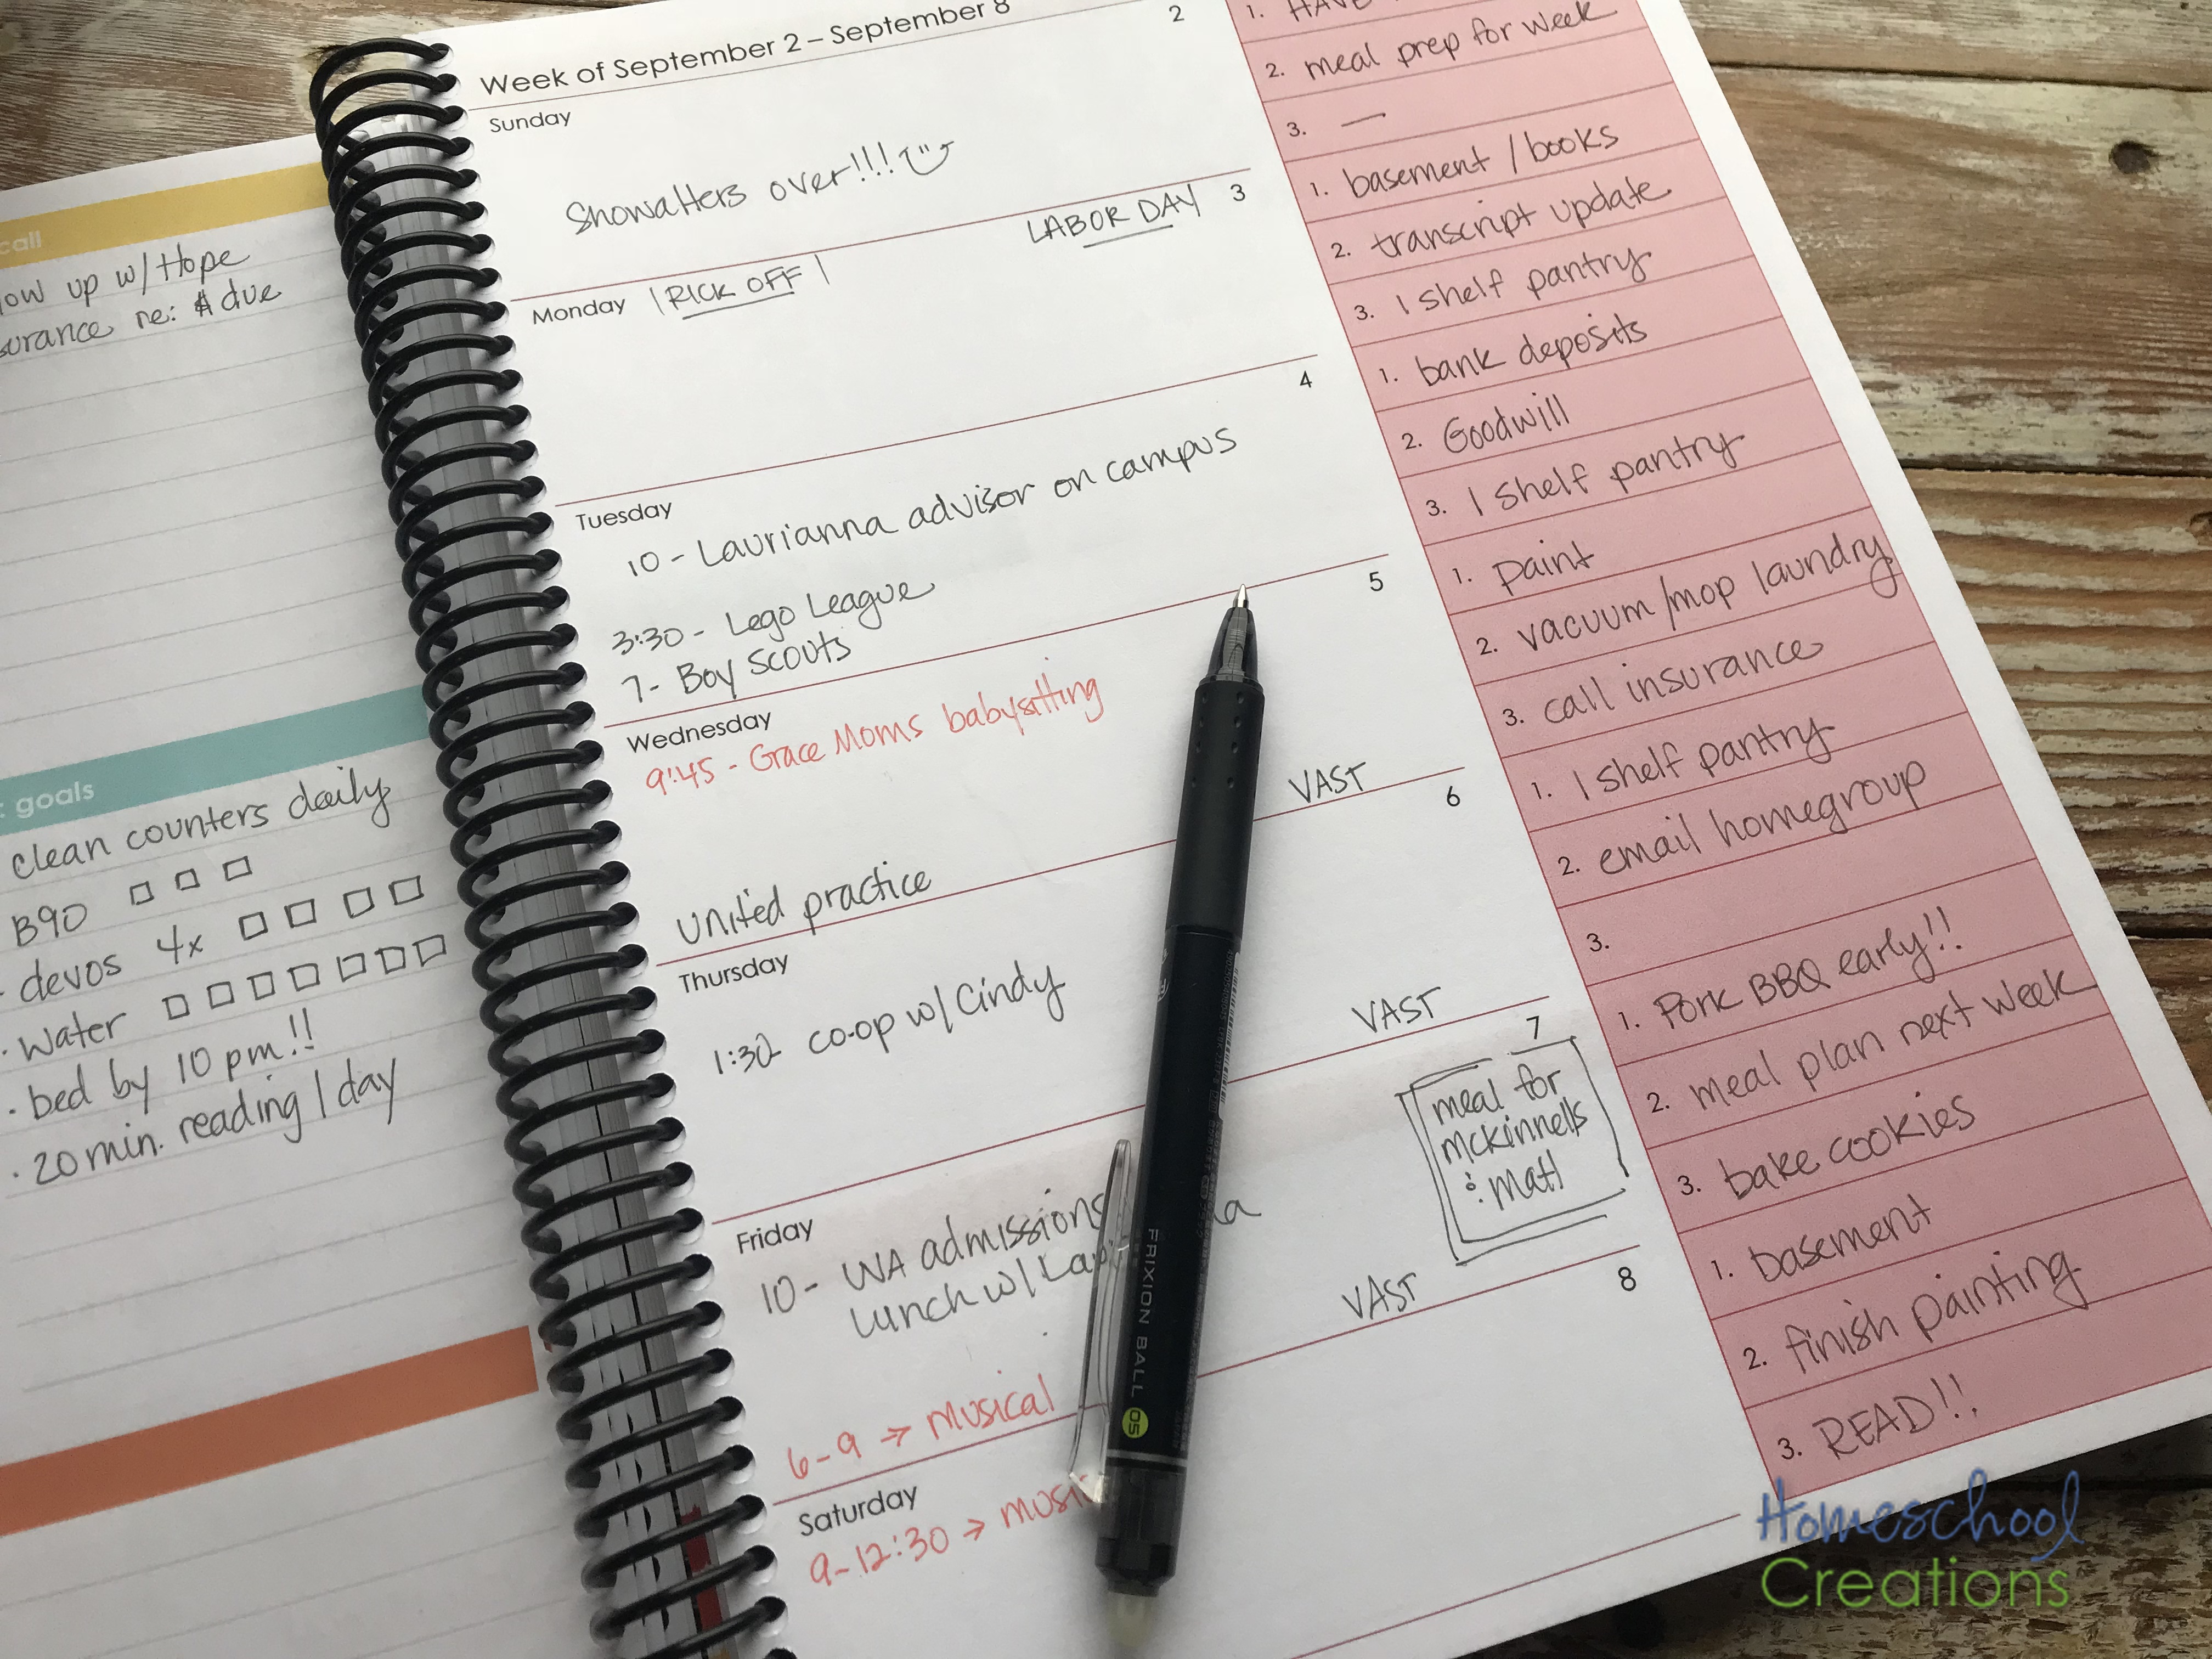 call
up w/ Hope
re: $ due
: goals
clean counters daily
B90
devos 4x
· water
· bed by 10 pm!!
· 20 min. reading / day
Week of September 2 – September 8
2
Sunday
Showalters over!!!
3
LABOR DAY
Monday
RICK OFF
4
Tuesday
10 - Laurianna advisor on campus
3:30 - Lego League
7 - Boy Scouts
5
Wednesday
9:45 - Grace Moms babysitting
VAST
United practice
6
Thursday
1:30 co-op w/ Cindy
VAST
7
meal for
McKinnells
& Matt
Friday
10 - WA admissions
Lunch w/
VAST
6-9 → Musical
8
Saturday
9-12:30 →
1. HAVE
2. meal prep for week
3. —
1. basement / books
2. transcript update
3. 1 shelf pantry
1. bank deposits
2. Goodwill
3. 1 shelf pantry
1. paint
2. vacuum/mop laundry
3. call insurance
1. 1 shelf pantry
2. email homegroup
3.
1. Pork BBQ early!!
2. meal plan next week
3. bake cookies
1. basement
2. finish painting
3. READ!!
FRIXION BALL 05
Homeschool
Creations